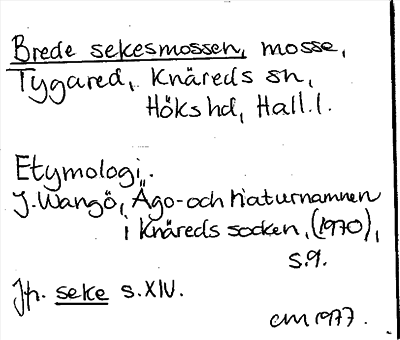 Brede sekesmossen, mosse,
Tygared, Knäreds sn,
Höks hd, Hall.l.
Etymologi.
J. Wangö, Ägo- och Naturnamnen
i Knäreds socken, (1970),
s.9.
Jfr. seke s.XIV.
cm 1977.